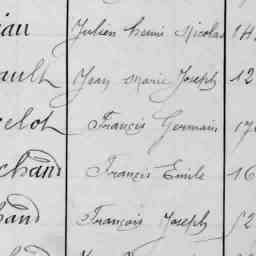 Julien henri Nicolas 14
ault Jean Marie Joseph 12
elot Francis Germain 17
chand Francis Emile 16
hand François Joseph 52